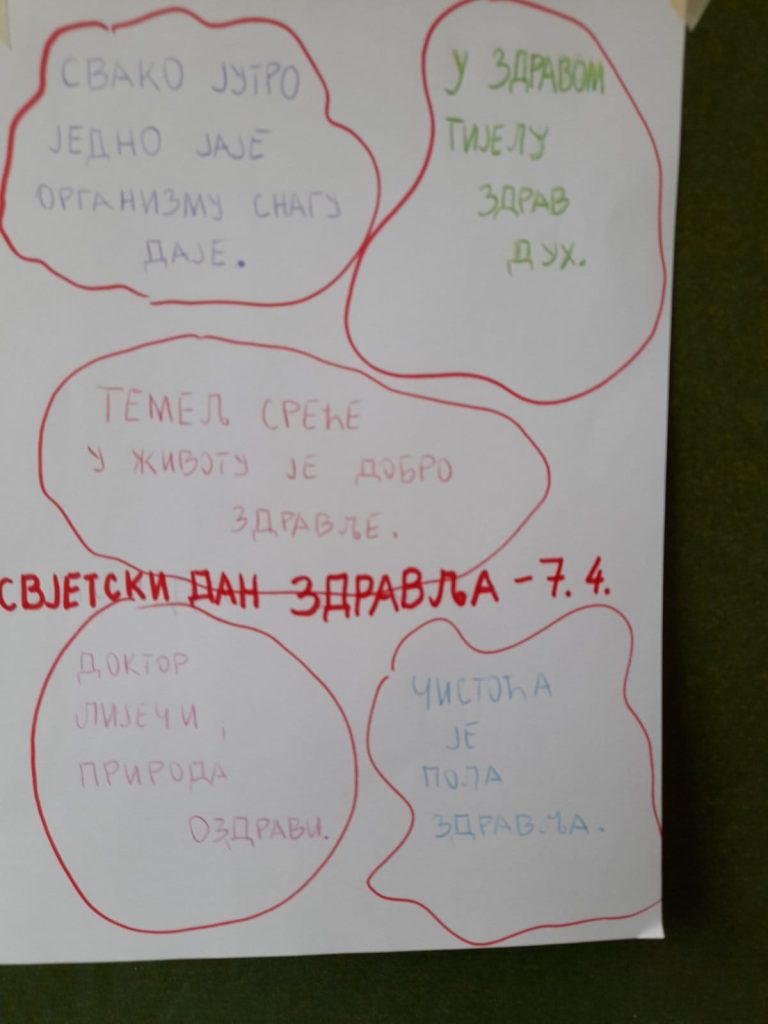 СВАКО ЈУТРО
ЈЕДНО ЈАЈЕ
ОРГАНИЗМУ СНАГУ
ДАЈЕ.
У ЗДРАВОМ
ТИЈЕЛУ
ЗДРАВ
ДУХ.
ТЕМЕЉ СРЕЋЕ
У ЖИВОТУ ЈЕ ДОБРО
ЗДРАВЉЕ.
СВЈЕТСКИ ДАН ЗДРАВЉА - 7. 4.
ДОКТОР
ЛИЈЕЧИ,
ПРИРОДА
ОЗДРАВИ.
ЧИСТОЋА
ЈЕ
ПОЛА
ЗДРАВЉА.